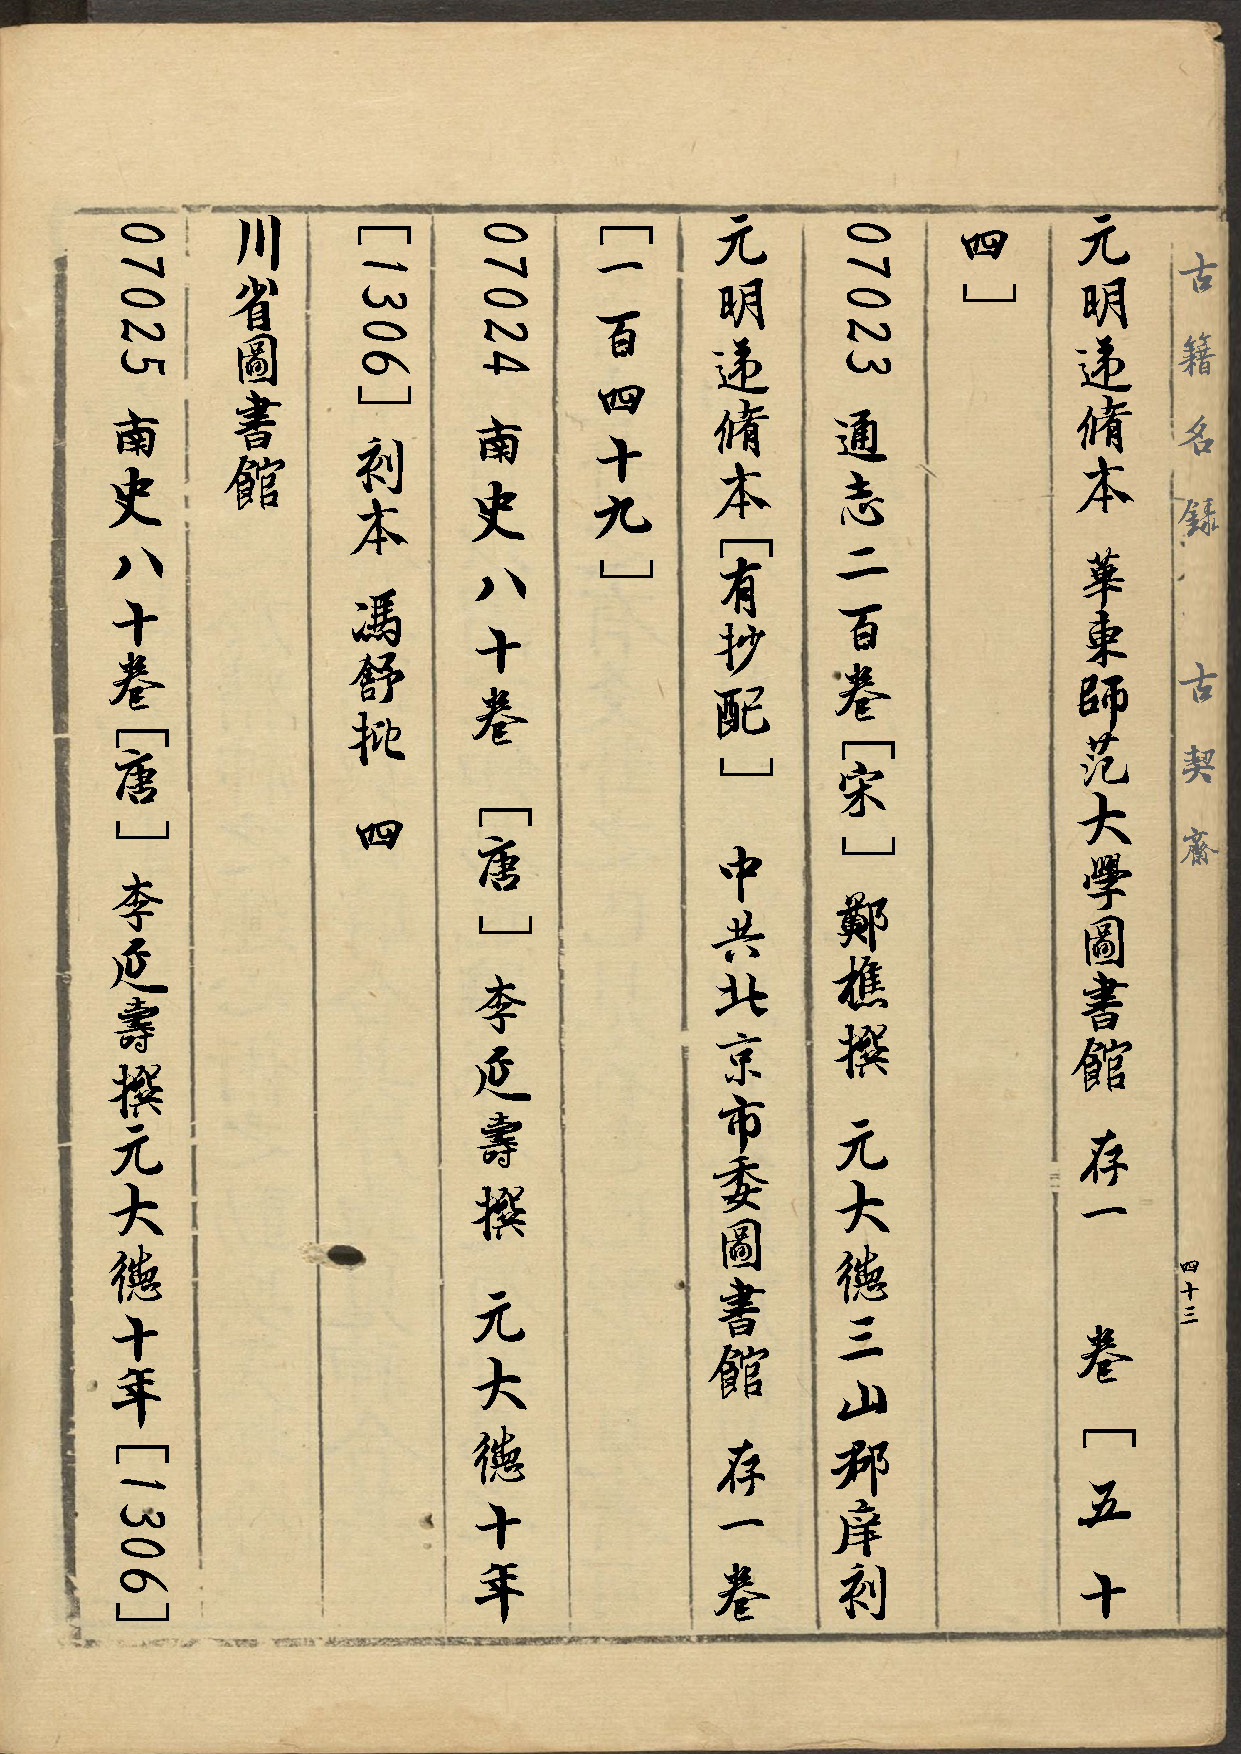 古籍名録 古契齋
四十三
元明递脩本 華東師范大學圖書館 存一 卷[五十
四]
07023 通志二百卷[宋]鄭樵撰 元大德三山郡庠刻
元明递脩本[有抄配] 中共北京市委圖書館 存一卷
[一百四十九]
07024 南史八十卷 [唐]李延壽撰 元大德十年
[1306]刻本 馮舒批 四
川省圖書館
07025 南史八十卷[唐]李延壽撰元大德十年[1306]